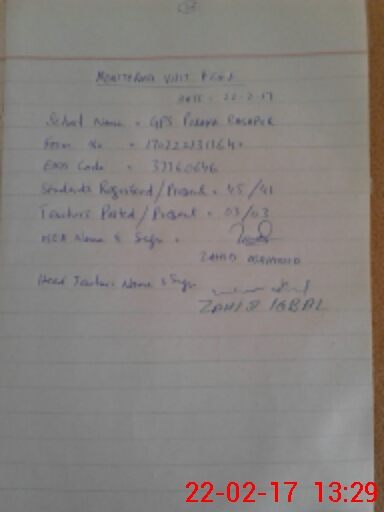 MONITORING VISIT PROOF
DATE: 22-2-17
School Name = GPS
Form No =
EMIS Code = 37360646
Students Registered/Present = 45/41
Teachers Posted/Present = 03/03
MEA Name & Sign =
ZAHID MAHMOOD
Head Teacher Name & Sign
ZAHID IQBAL
22-02-17 13:29